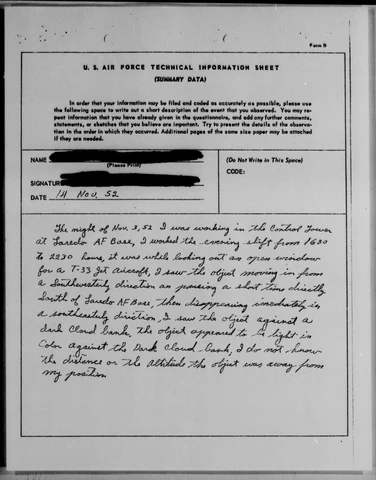 Form B
U. S. AIR FORCE TECHNICAL INFORMATION SHEET
(SUMMARY DATA)
In order that your information may be filed and coded as accurately as possible, please use
the following space to write out a short description of the event that you observed. You may re-
peat information that you have already given in the questionnaire, and add any further comments,
statements, or sketches that you believe are important. Try to present the details of the observa-
tion in the order in which they occurred. Additional pages of the same size paper may be attached
if they are needed.
NAME
(Please Print)
SIGNATURE
DATE 14 Nov. 52
(Do Not Write in This Space)
CODE:
The night of Nov. 3, 52 I was working in the Control Tower
at Laredo AF Base, I worked the evening shift from 1630
to 2230 hours, it was while looking out an open window
for a T-33 Jet aircraft, I saw the object moving in from
a Southwesterly direction an pausing a short time directly
South of Laredo AF Base, then disappearing imediately in
a southeasterly direction, I saw the object against a
dark Cloud bank, the object appeared to be light in
Color against the Dark Cloud bank, I do not know
the distance or the Altitude the object was away from
my position